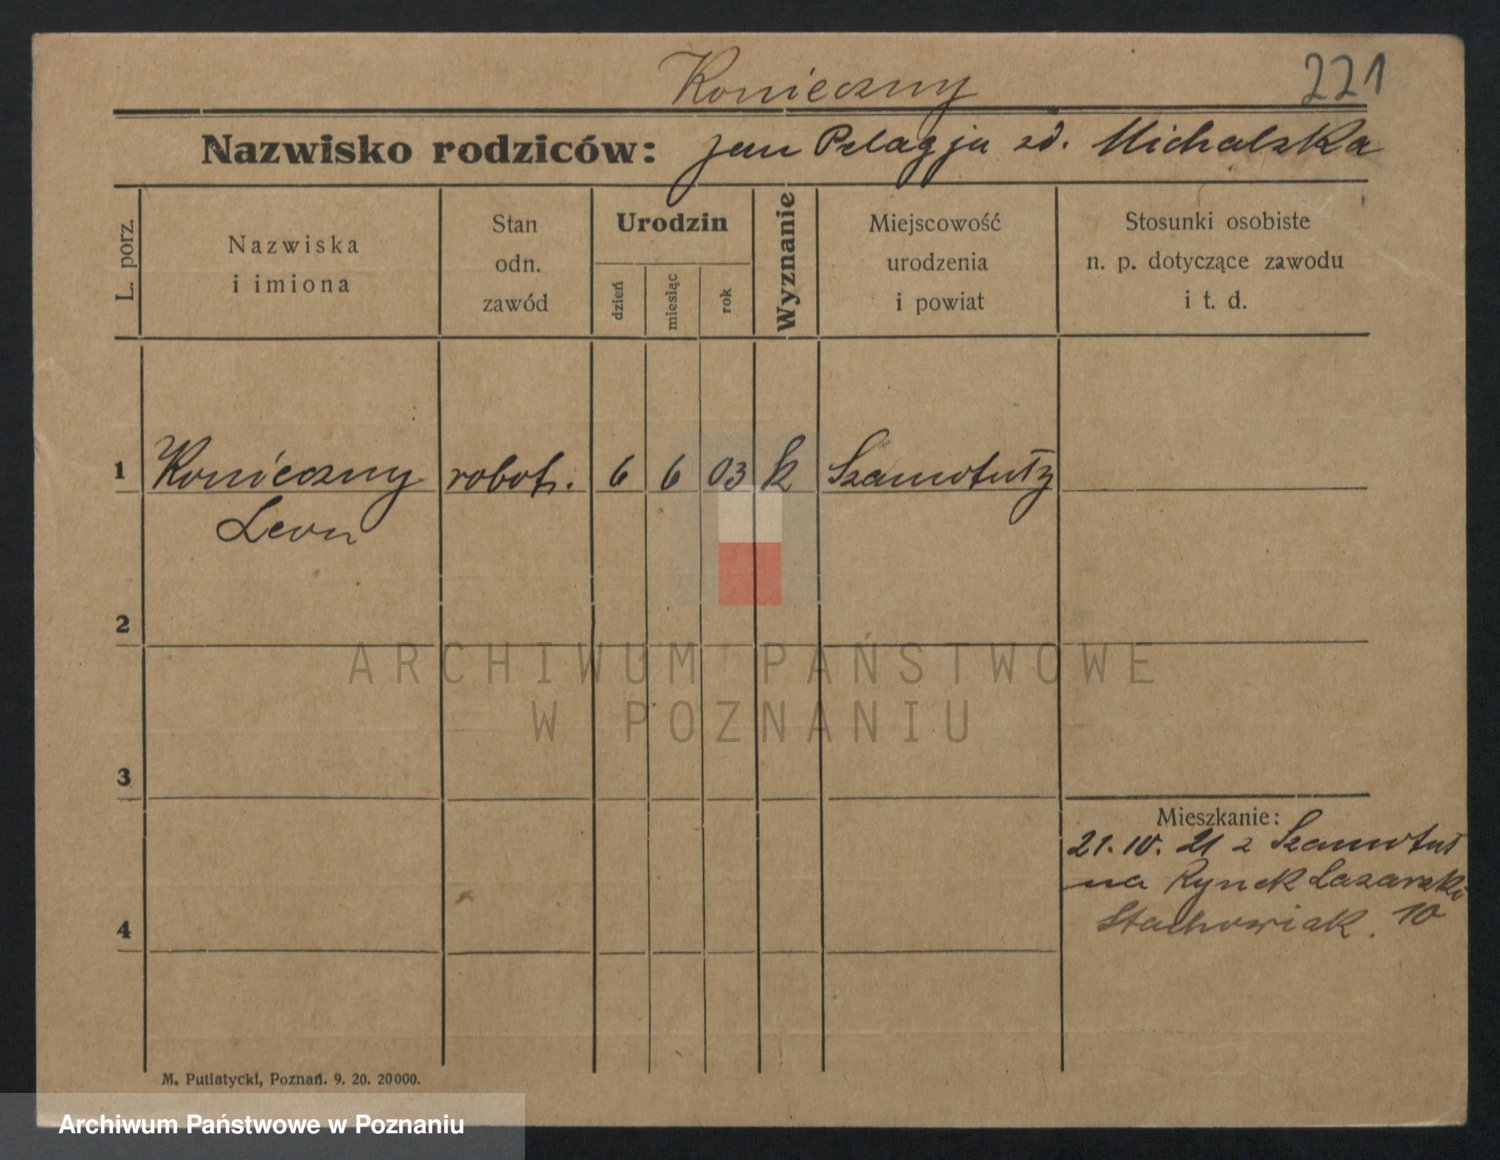 Konieczny
221
Nazwisko rodziców: Jan Pelagja zd. Michalska
L. porz.
Nazwiska
i imiona
Stan
odn.
zawód
Urodzin
dzień
miesiąc
rok
Wyznanie
Miejscowość
urodzenia
i powiat
Stosunki osobiste
n. p. dotyczące zawodu
i t. d.
1 Konieczny robotn. 6 6 03 k Szamotuły
Leon
2
ARCHIWUM PAŃSTWOWE
W POZNANIU
3
Mieszkanie:
21. IV. 21 z Szamotuł
na Rynek Łazarski
4 Stachowiak. 10
M. Putiatycki, Poznań. 9. 20. 20000.
Archiwum Państwowe w Poznaniu